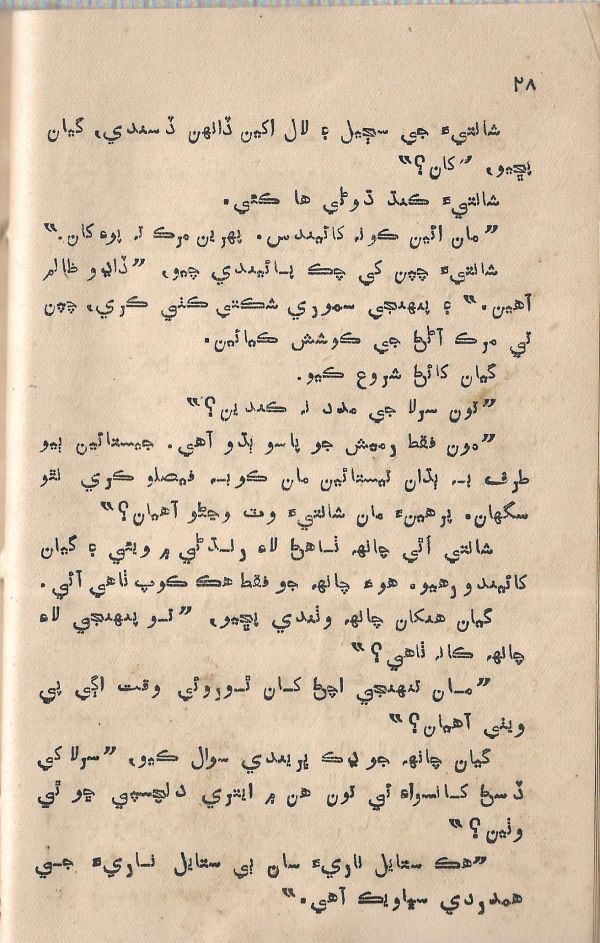 ۲۸
شانتيءَ جي سڄيل ۽ لال اکين ڏانهن ڏسندي، گيان
پڇيو، ”کان؟“
شانتيءَ ڪنڌ ڌوڻي ها ڪئي.
”مان ائين ڪونہ کائيندس. پهرين مرڪ تہ پوءِ کان.“
شانتيءَ چپن کي چڪ پائيندي چيو، ”ڏاڍو ظالم
آهين.“ ۽ پنهنجي سموري شڪتي ڪٺي ڪري، چپن
تي مرڪ آڻڻ جي ڪوشش ڪيائين.
گيان کائڻ شروع ڪيو.
”تون سرلا جي مدد نہ ڪندين؟“
”مون فقط رميش جو پاسو ٻڌو آهي. جيستائين ٻيو
طرف بہ ٻڌان تيستائين مان ڪوبہ فيصلو ڪري نٿو
سگهان. پرهينءَ مان شانتيءَ وٽ وڃڻو آهيان؟“
شانتي اٿي چانهہ ٺاهڻ لاءِ رنڌڻي ۾ ويئي ۽ گيان
کائيندو رهيو. هوءَ چانهہ جو فقط هڪ ڪوپ ٺاهي آئي.
گيان هنکان چانهہ وٺندي پڇيو، ”تو پنهنجي لاءِ
چانهہ ڪانہ ٺاهي؟“
”مان تنهنجي اچڻ کان ٿوروئي وقت اڳي پي
ويٺي آهيان؟“
گيان چانهہ جو ڍڪ ڀريندي سوال ڪيو، ”سرلا کي
ڏسڻ کانسواءِ ئي تون هن ۾ ايتري دلچسپي ڇو ٿي
وٺين؟“
”هڪ ستايل ناريءَ سان ٻي ستايل ناريءَ جي
همدردي سڀاويڪ آهي.“